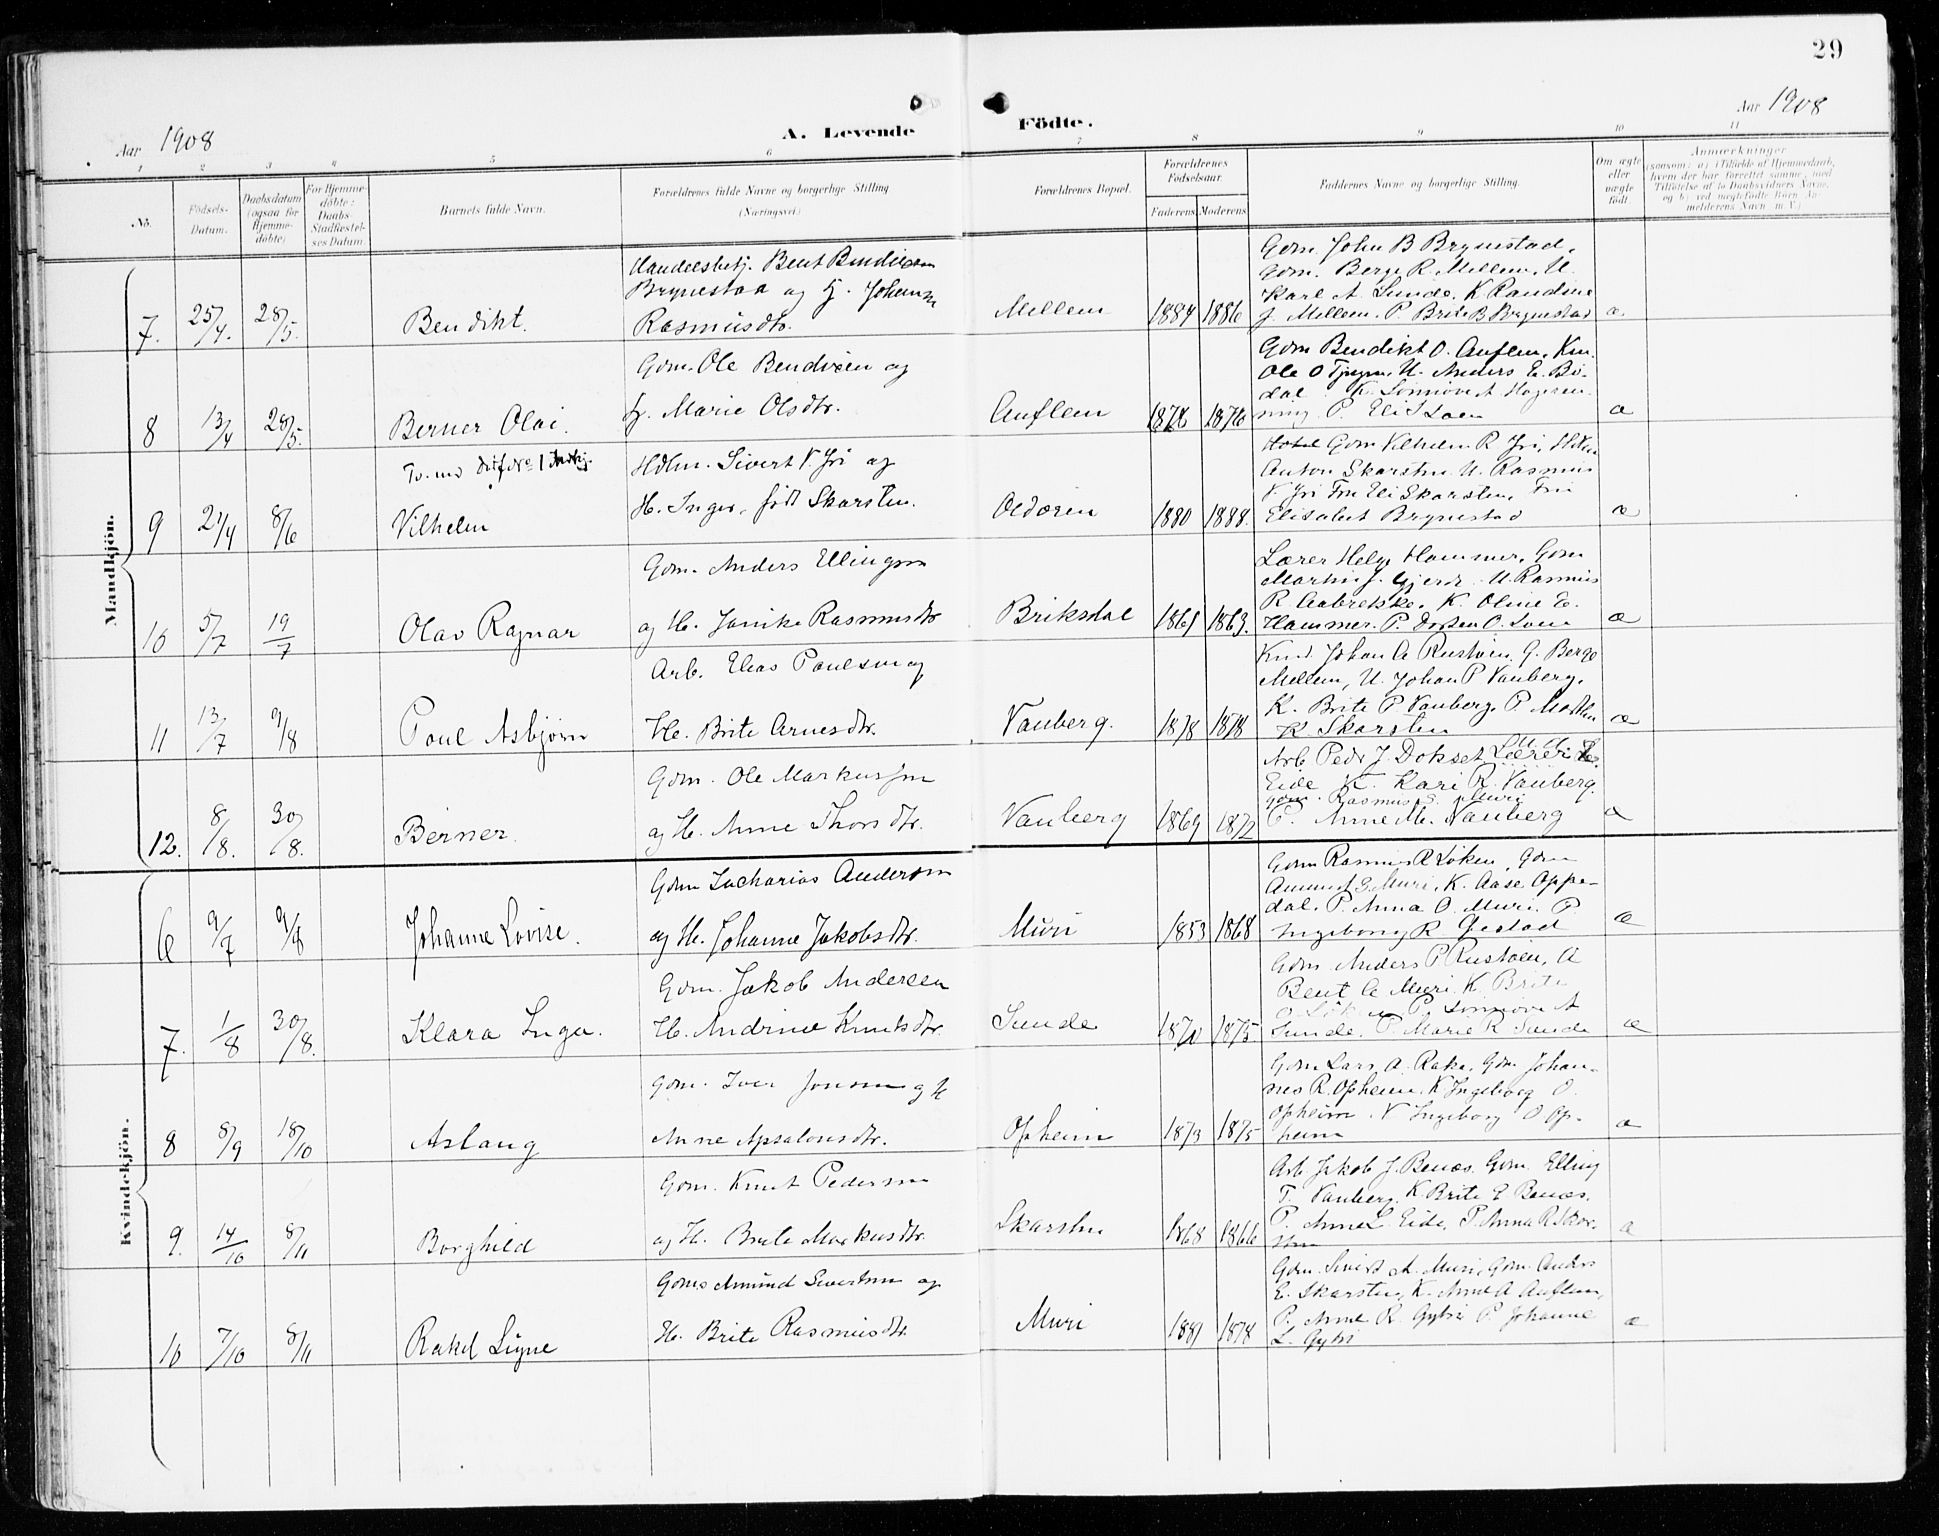 29
Aar 1908
A. Levende Födte.
Aar 1908
1 2 3 4 5 6 7 8 9 10 11
No.
Födsels-Datum.
Daabsdatum (ogsaa for Hjemme-döbte)
For Hjemme-döbte: Daabs-Stadfæstel-ses Datum.
Barnets fulde Navn.
Forældrenes fulde Navne og borgerlige Stilling
(Næringsvei.)
Forældrenes Bopæl.
Forældrenes Födselsaar.
Faderens Moderens
Faddernes Navne og borgerlige Stilling.
Om ægte eller uægte födt
Anmærkninger
Mandkjön.
7. 25/4. 28/5. Bendikt.
Handelsbetj. Bent
Brynestad og Hj. Johanne
Rasmusdtr.
Mellem 1884 1886
Gdm. John B Brynestad,
Gdm. Berge R. Mellem, U.
Karl A. Sunde, K Randine
J. Mellem. P. Brite B Brynestad æ
8 13/4 28/5. Berner Olai.
Gdm. Ole Bendixen og
Hj. Marie Olsdtr.
Auflem 1878 1876
Gdm Bendikt O. Auflem,
Ole O U. Anders E. Bö-
dal K. Sönnöve A
P. Eli S Loen æ
9 21/4 8/6 Vilhelm
Hdlm. Sivert V. Yri og
H. Inger, född Skarsten.
Oldören 1880 1888.
Gdm Vilhelm R Yri,
Anton Skarsten U. Rasmus
V Yri Fru Eli Skarsten, Fru
Elisabet Brynestad æ
10 5/7 19/7 Olav Ragnar
Gdm. Anders Ellingsen
og H. Janike Rasmusdtr
Briksdal 1861 1863.
Lærer Helge Hammer, Gdm
Martin J. Gjerde. U. Rasmus
R Aabrekke. K. Oline E.
Hammer. P. O. Loen æ
11 13/7 9/8 Paul Asbjörn
Arb. Elias Paulsen og
H. Brite Arnesdtr.
Vanberg. 1878 1878
Johan A Rustöen, G. Berge
Mellem, U. Johan P Vanberg,
K. Brite P Vanberg, P.
K Skarsten æ
12. 8/8. 30/8. Berner.
Gdm. Ole Markussen
og H. Anne Thorsdtr.
Vanberg 1869 1872
Arb Peder J. Dokset Lærer
Eide K. Kari R. Vanberg.
Gdm. Rasmus S. Muri
P. Anne M. Vanberg æ
Kvindekjön.
6 9/7 9/8 Johanne Lovise.
Gdm Zacharias Andersen
og H. Johanne Jakobsdtr.
Muri 1853 1868
Gdm Rasmus R Löken, Gdm
Amund Z. Muri, K. Aase Oppe-
dal, P. Anna O. Muri. P.
Ingeborg R. Gjestad æ
7. 1/8 30/8. Klara Inga.
Gdm. Jakob Andersen
H. Andrine Knutsdtr.
Sunde 1870 1875
Gdm Anders P Rustöen, A
Bent A Muri K. Brite
Löken P. Sönnöve A
Sunde. P. Marie R Sunde æ
8 8/9 18/10 Aslaug
Gdm. Iver Jonsen og H
Anne Apsalonsdtr.
Opheim 1873 1875
Gdm Lars A. Rake, Gdm. Johan-
nes R. Opheim K Ingeborg O.
Opheim Ingeborg O Op-
heim æ
9. 14/10 8/11 Borghild
Gdm. Knut Pedersen
og H. Brite Markusdtr.
Skarsten 1868 1866
Arb. Jakob J. Benæs. Gdm. Elling
T. Vanberg, K Brite E Benæs.
P. Anne L. Eide, P. Anna R. Skar-
sten æ
10 7/10 8/11 Rakel Signe
Gdm. Amund Sivertsen og
H. Brite Rasmusdtr.
Muri 1881 1878
Gdm. Sivert A. Muri, Gdm. Anders
E. Skarsten, K. Anne A Auflem,
P. Anne R. Gytri P. Johanne
L. Gytri æ